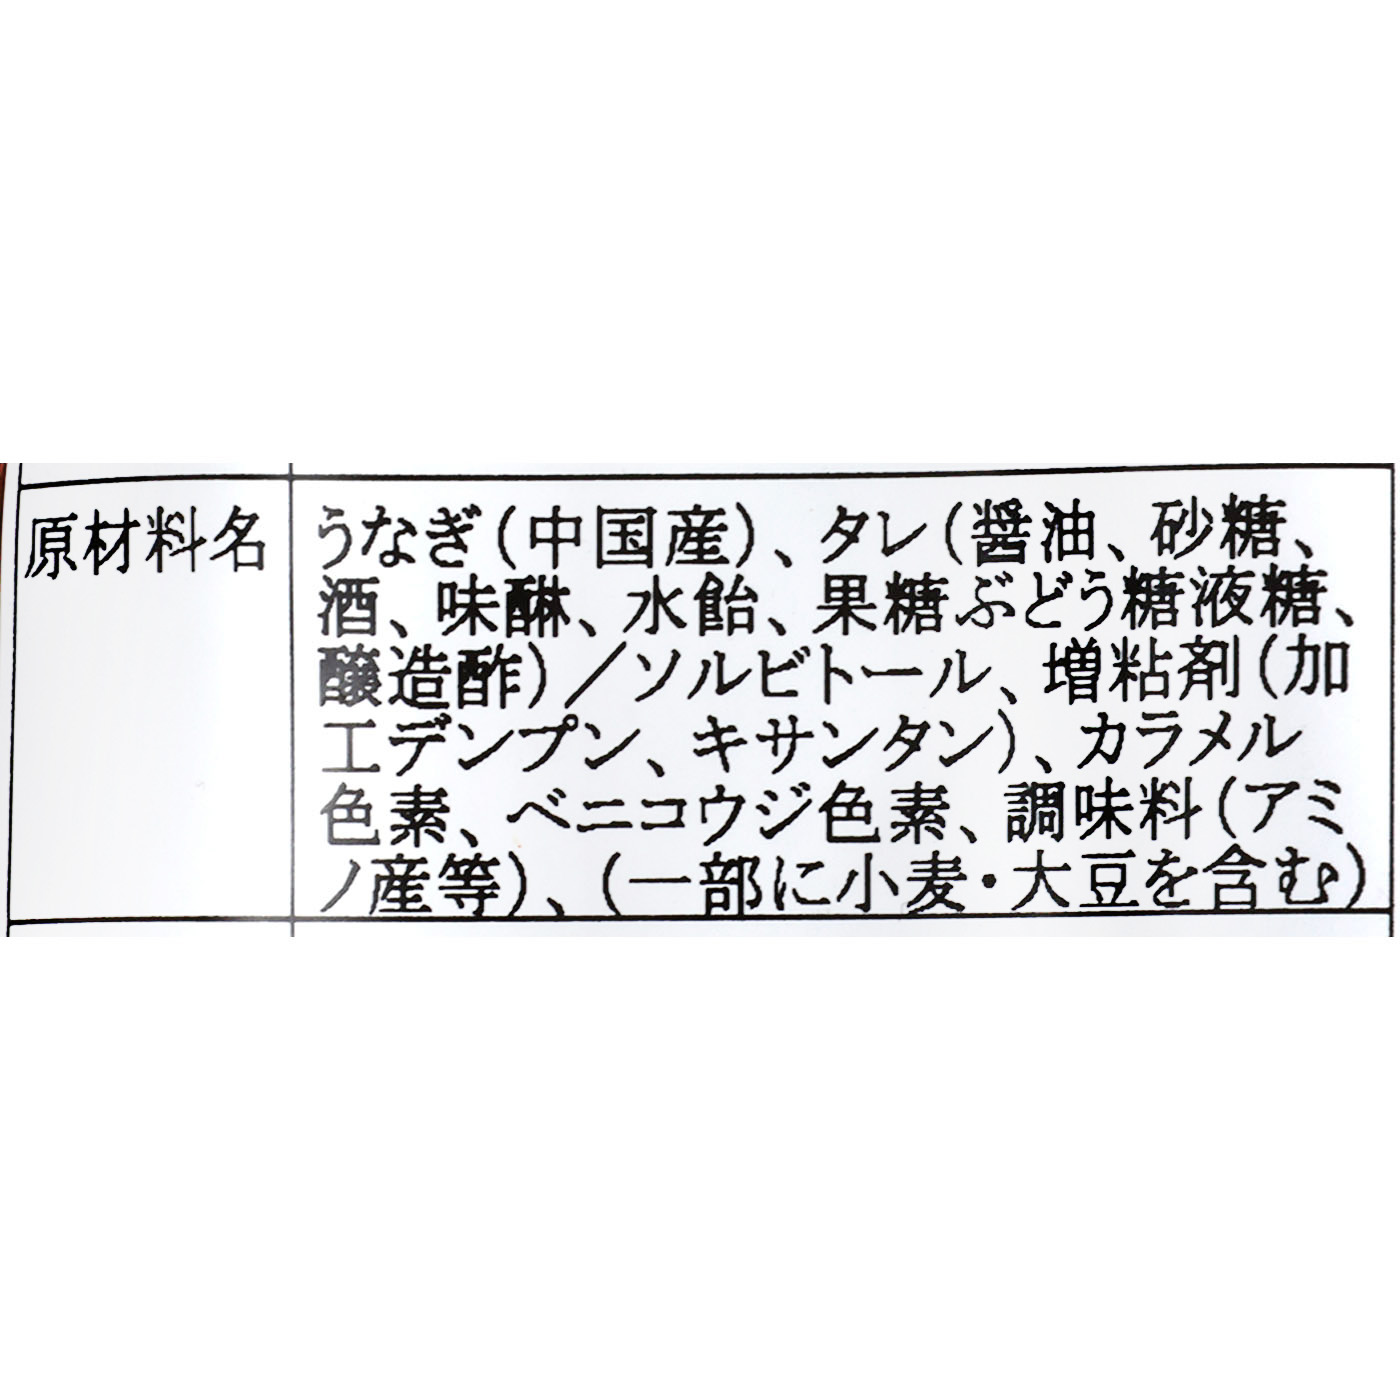 原材料名
うなぎ(中国産)、タレ(醤油、砂糖、
酒、味醂、水飴、果糖ぶどう糖液糖、
醸造酢)/ソルビトール、増粘剤(加
工デンプン、キサンタン)、カラメル
色素、ベニコウジ色素、調味料(アミ
ノ産等)、(一部に小麦・大豆を含む)